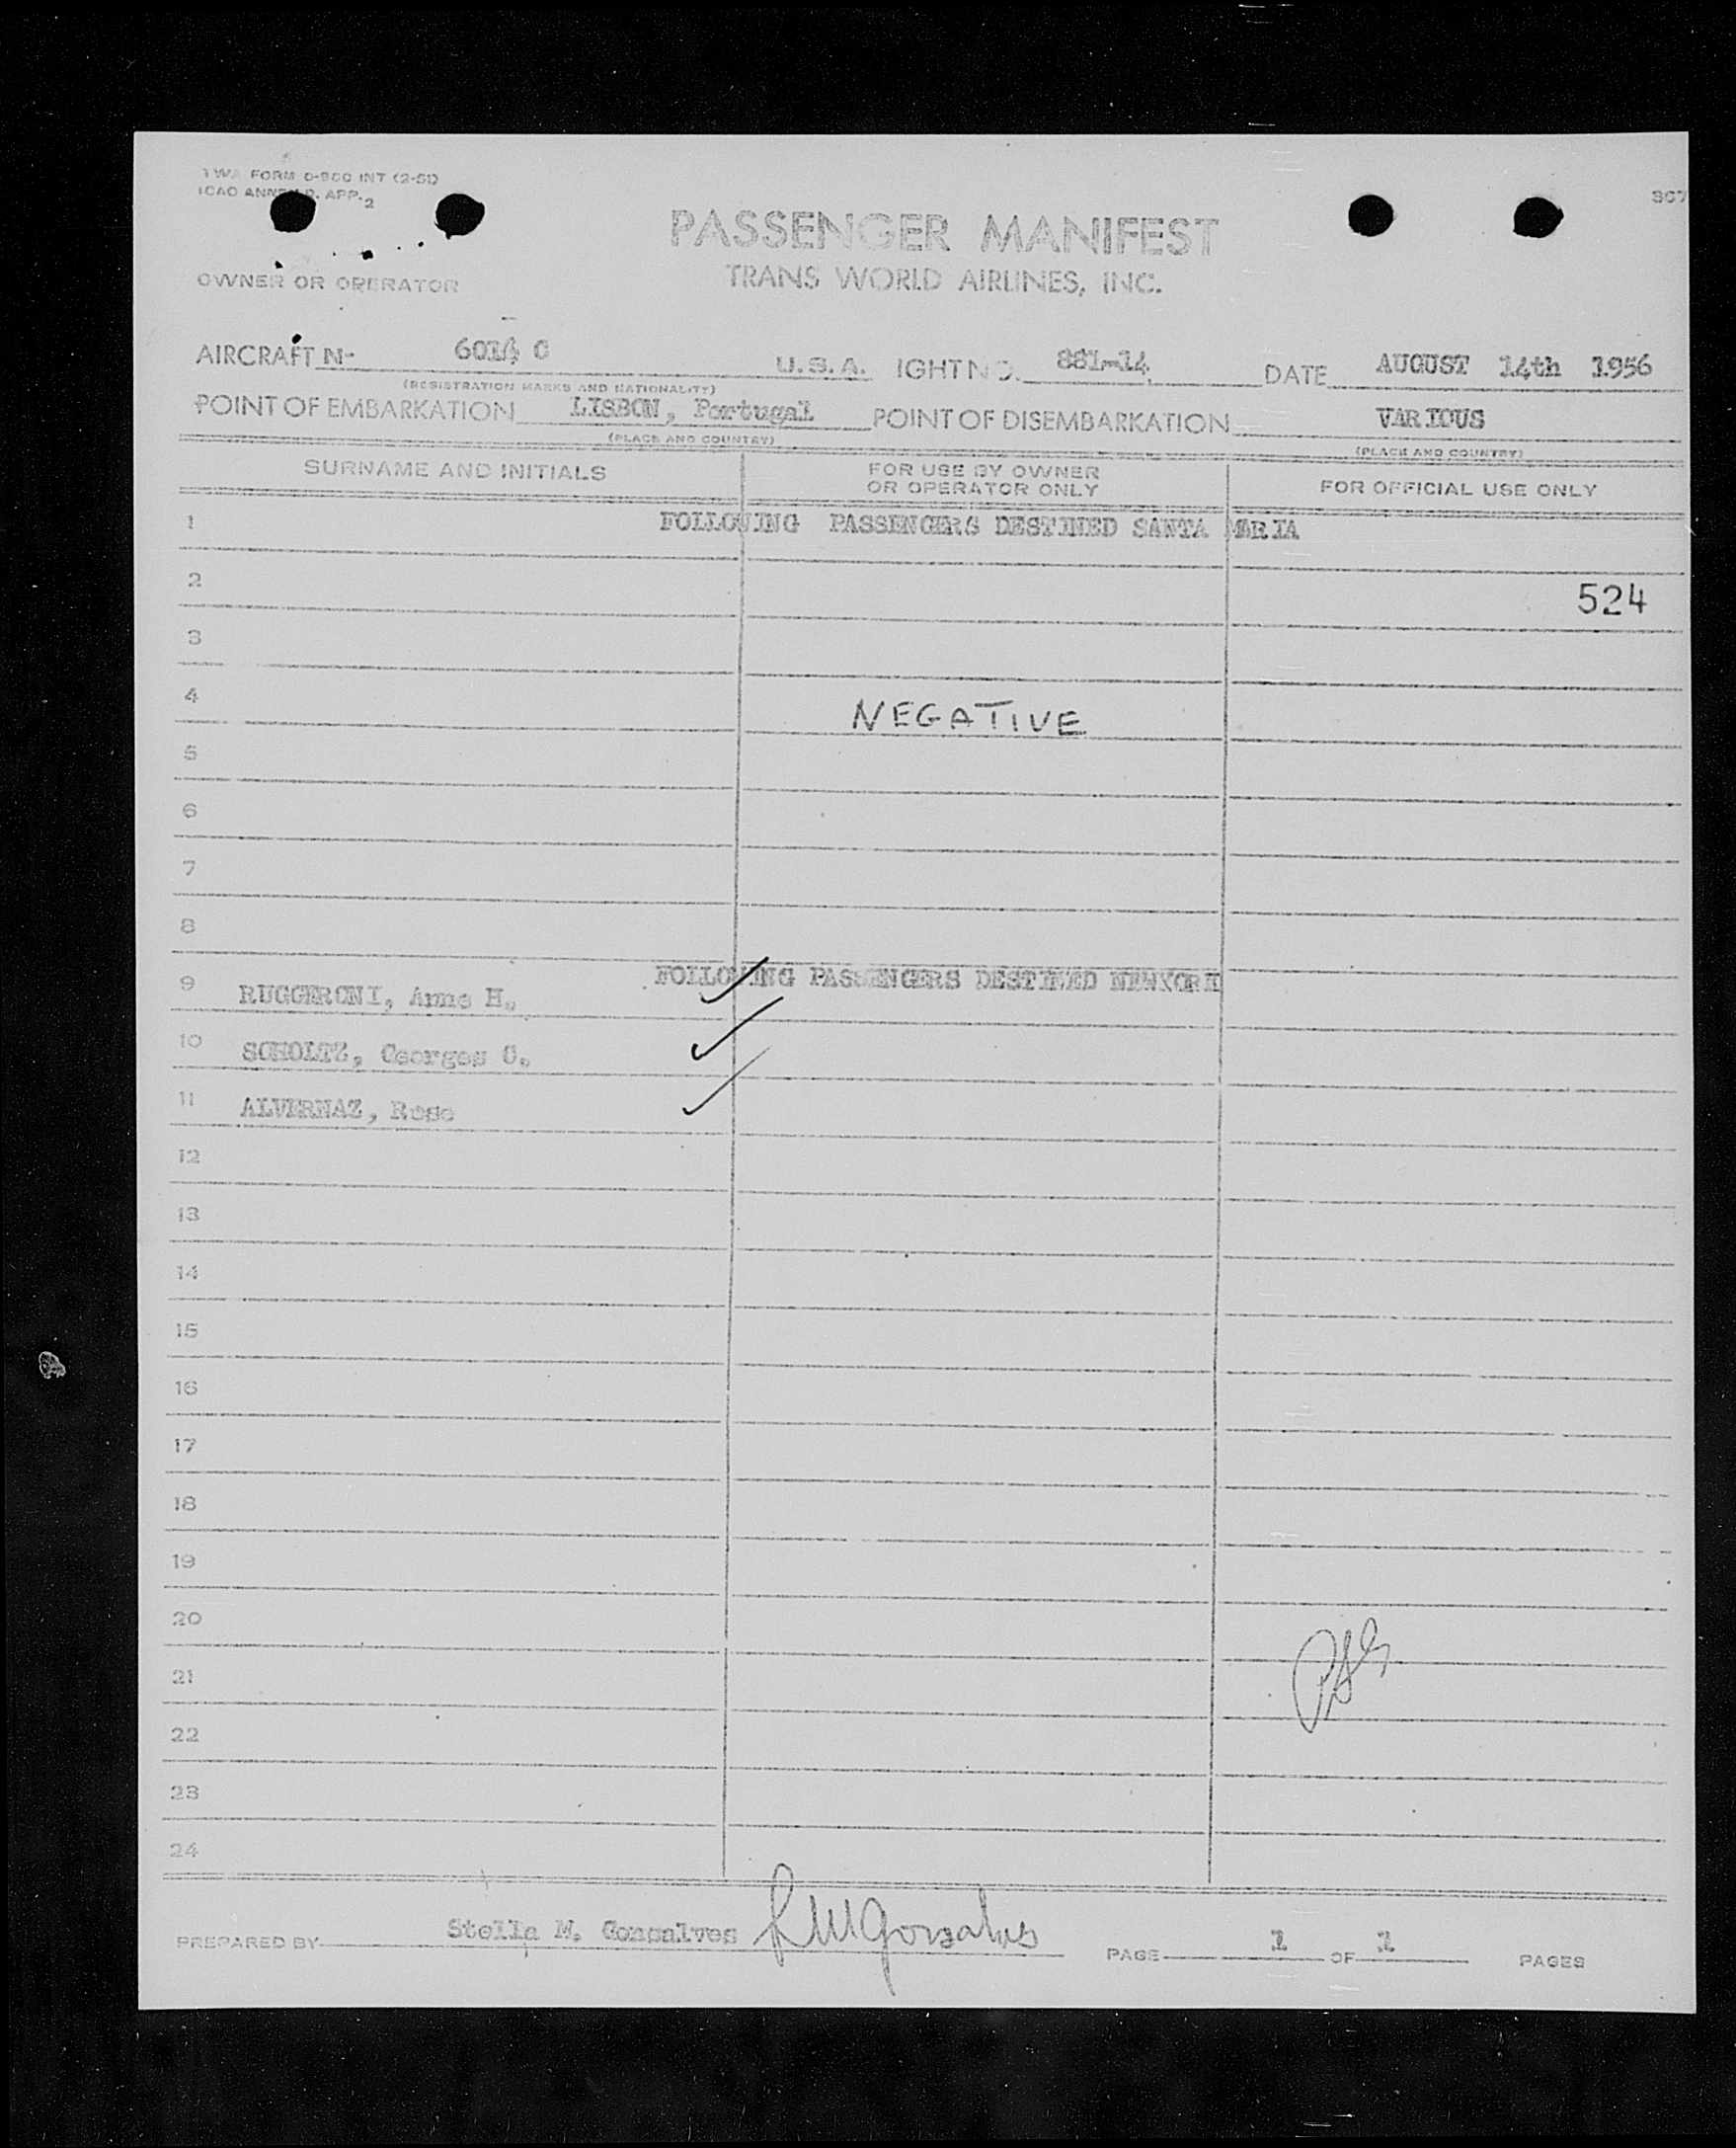 TWA FORM O-900 INT (2-51)
ICAO ANNEX 9, APP. 2
307
PASSENGER MANIFEST
TRANS WORLD AIRLINES, INC.
OWNER OR OPERATOR
AIRCRAFT N- 6014 C U.S.A. IGHT NO. 881-14 DATE AUGUST 14th 1956
(REGISTRATION MARKS AND NATIONALITY)
POINT OF EMBARKATION LISBON, Portugal POINT OF DISEMBARKATION VARIOUS
(PLACE AND COUNTRY) (PLACE AND COUNTRY)
SURNAME AND INITIALS FOR USE BY OWNER OR OPERATOR ONLY FOR OFFICIAL USE ONLY
1 FOLLOWING PASSENGERS DESTINED SANTA MARIA
2 524
3
4 NEGATIVE
5
6
7
8
FOLLOWING PASSENGERS DESTINED NEWYORK
9 RUGGERONI, Anne H.,
10 SCHOLTZ, Georges C.,
11 ALVERNAZ, Rose
12
13
14
15
16
17
18
19
20
21
22
23
24
PREPARED BY Stella M. Gonsalves PAGE 1 OF 1 PAGES